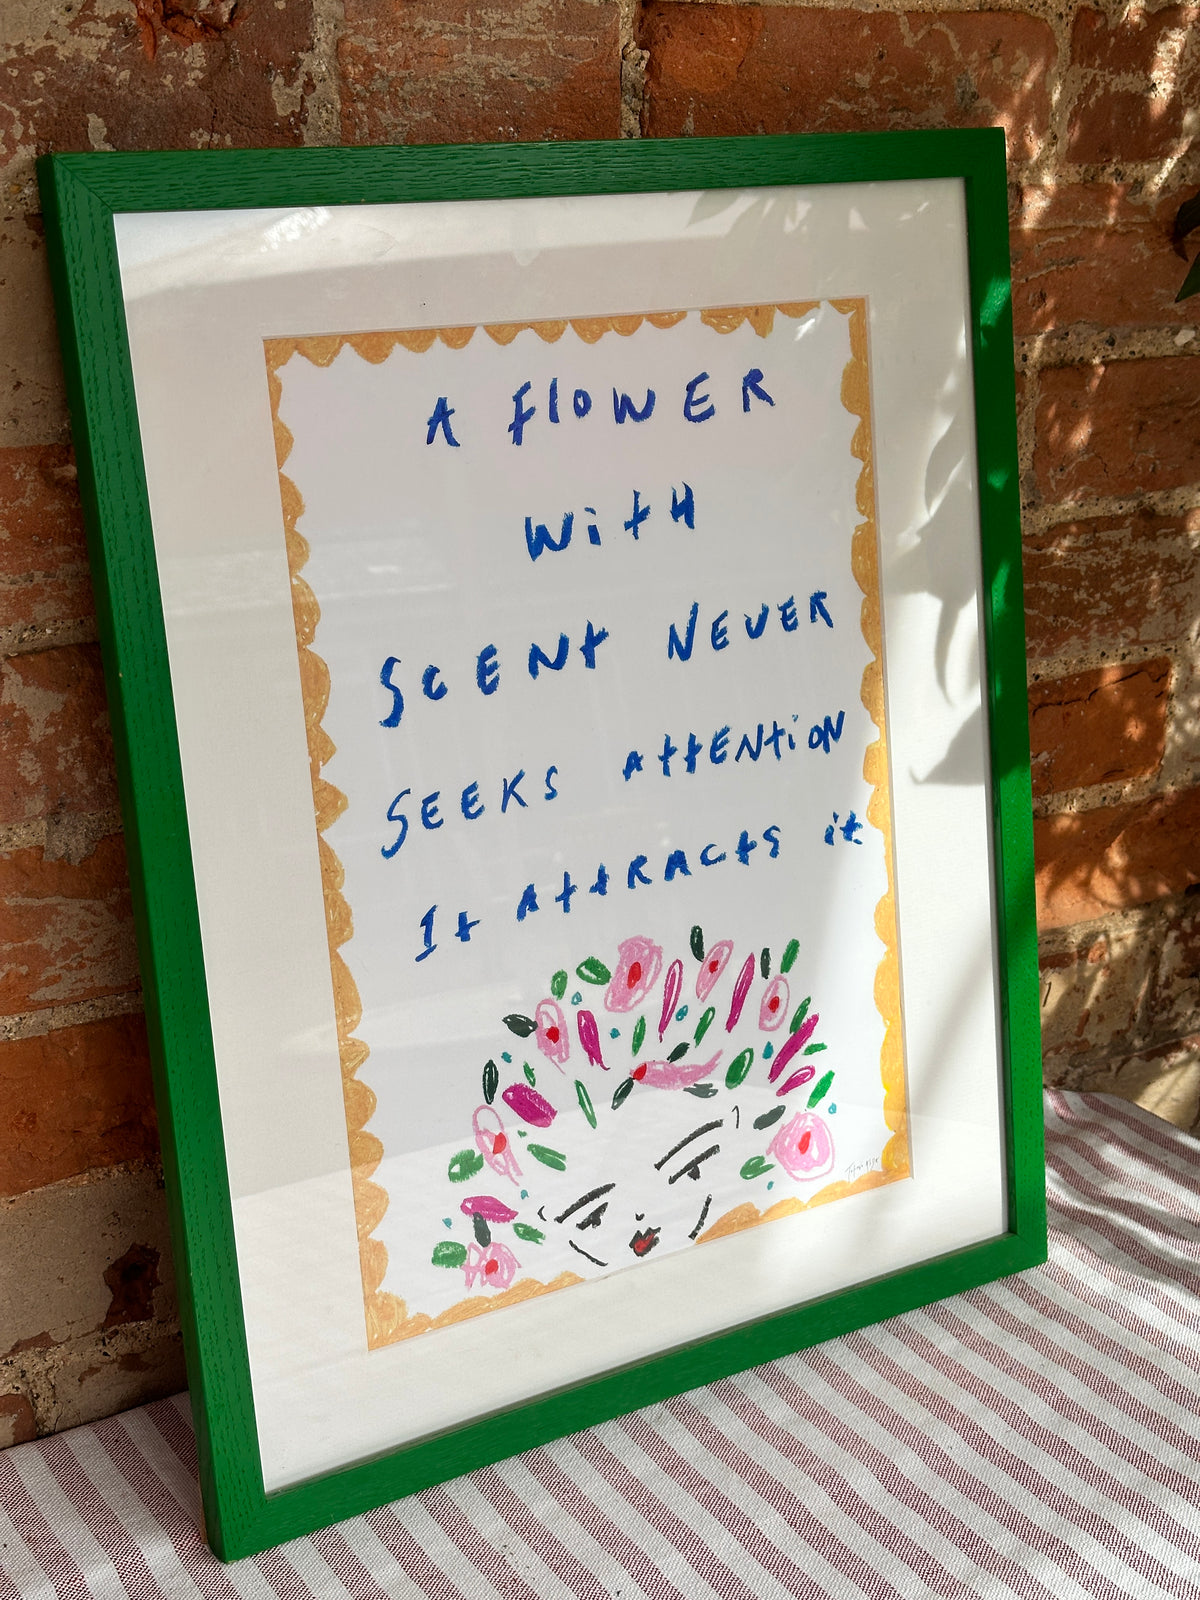 A FlOWER
WitH
SCENt NEVER
SEEKS AttENtiON
It AttRACtS it